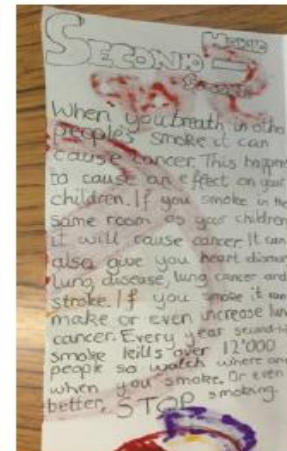 SECOND
HAND
SMOKE
When you breath in other
people's smoke it can
cause cancer. This happens
to cause an effect on your
children. If you smoke in the
same room as your children
it will cause cancer. It can
also give you heart
lung disease, lung cancer and
stroke. If you smoke it can
make or even increase lung
cancer. Every year second-
smoke kills over 12'000
people so watch where and
when you smoke. Or even
better, STOP smoking.